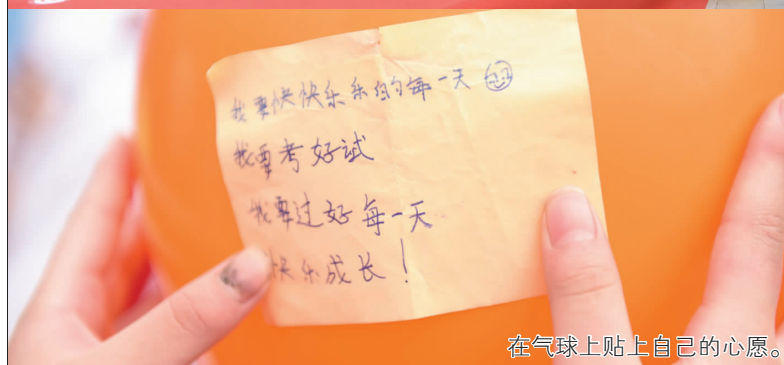 我要快快乐乐的每一天
我要考好试
我要过好每一天
快乐成长！
在气球上贴上自己的心愿。